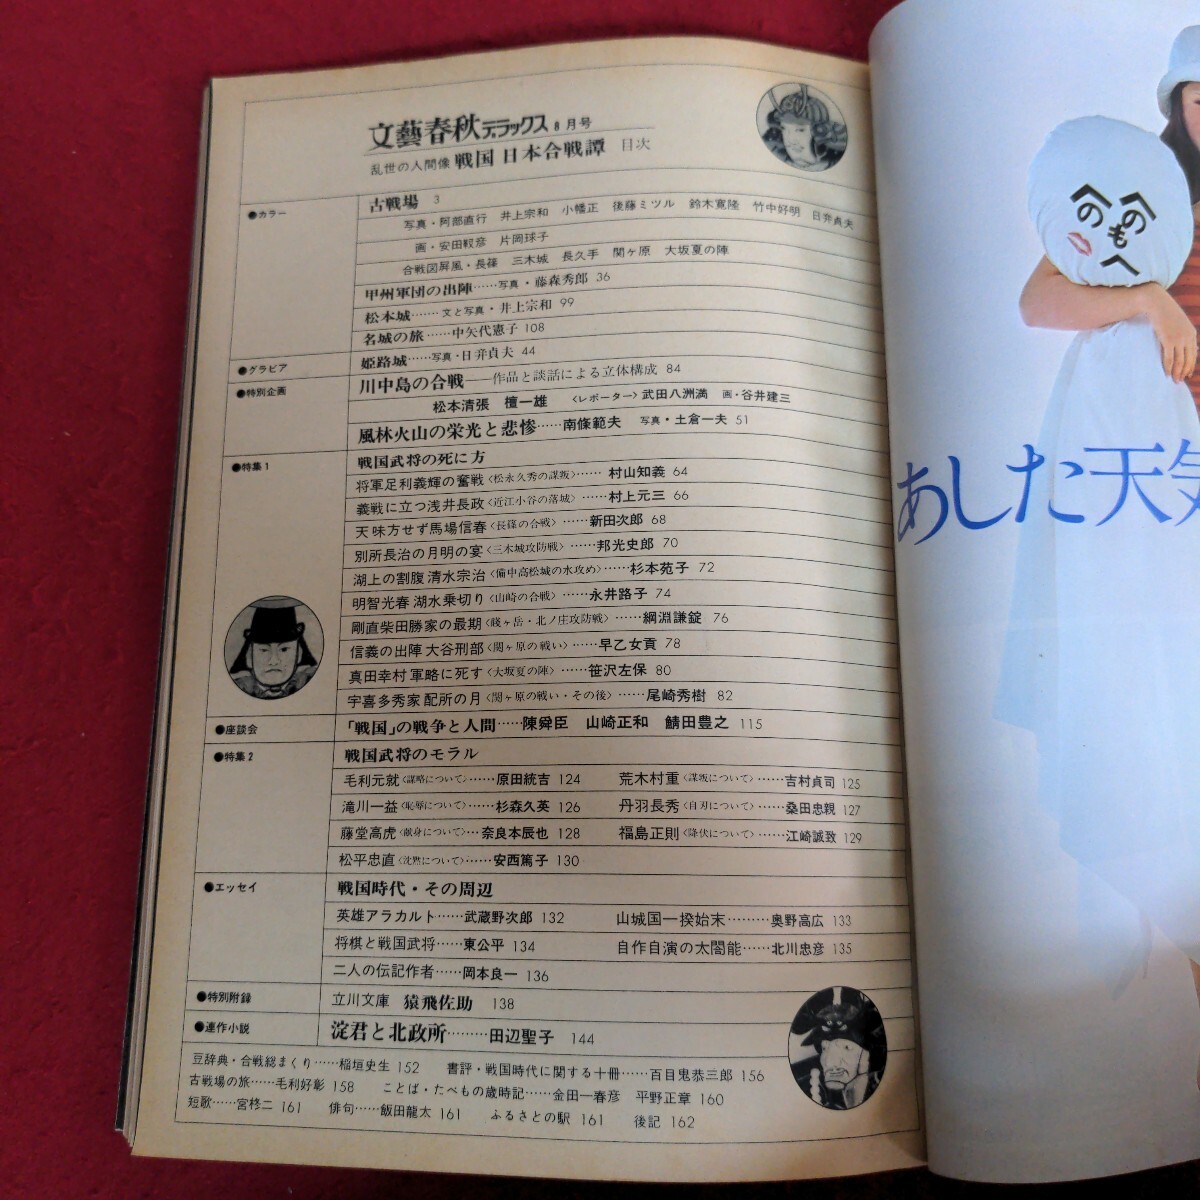 文藝春秋デラックス 8月号
乱世の人間像 戦国 日本合戦譚 目次
●カラー
古戦場 3
写真・阿部直行 井上宗和 小幡正 後藤ミツル 鈴木寛隆 竹中好明 日弁貞夫
画・安田靫彦 片岡球子
合戦図屏風・長篠 三木城 長久手 関ヶ原 大坂夏の陣
甲州軍団の出陣……写真・藤森秀郎 36
松本城……文と写真・井上宗和 99
名城の旅……中矢代憲子 108
●グラビア
姫路城……写真・日弁貞夫 44
●特別企画
川中島の合戦――作品と談話による立体構成 84
松本清張 檀一雄 〈レポーター〉武田八洲満 画・谷井建三
風林火山の栄光と悲惨……南條範夫 写真・土倉一夫 51
●特集1
戦国武将の死に方
将軍足利義輝の奮戦〈松永久秀の謀叛〉……村山知義 64
義戦に立つ浅井長政〈近江小谷の落城〉……村上元三 66
天味方せず馬場信春〈長篠の合戦〉……新田次郎 68
別所長治の月明の宴〈三木城攻防戦〉……邦光史郎 70
湖上の割腹 清水宗治〈備中高松城の水攻め〉……杉本苑子 72
明智光春 湖水乗切り〈山崎の合戦〉……永井路子 74
剛直柴田勝家の最期〈賤ヶ岳・北ノ庄攻防戦〉……綱淵謙錠 76
信義の出陣 大谷刑部〈関ヶ原の戦い〉……早乙女貢 78
真田幸村 軍略に死す〈大坂夏の陣〉……笹沢左保 80
宇喜多秀家 配所の月〈関ヶ原の戦い・その後〉……尾崎秀樹 82
●座談会
「戦国」の戦争と人間……陳舜臣 山崎正和 鯖田豊之 115
●特集2
戦国武将のモラル
毛利元就〈謀略について〉……原田統吉 124 荒木村重〈謀叛について〉……吉村貞司 125
滝川一益〈恥辱について〉……杉森久英 126 丹羽長秀〈自刃について〉……桑田忠親 127
藤堂高虎〈献身について〉…奈良本辰也 128 福島正則〈降伏について〉……江崎誠致 129
松平忠直〈沈黙について〉……安西篤子 130
●エッセイ
戦国時代・その周辺
英雄アラカルト……武蔵野次郎 132 山城国一揆始末………奥野高広 133
将棋と戦国武将……東公平 134 自作自演の太閤能……北川忠彦 135
二人の伝記作者……岡本良一 136
●特別附録
立川文庫 猿飛佐助 138
●連作小説
淀君と北政所………田辺聖子 144
豆辞典・合戦総まくり……稲垣史生 152 書評・戦国時代に関する十冊……百目鬼恭三郎 156
古戦場の旅……毛利好彰 158 ことば・たべもの歳時記……金田一春彦 平野正章 160
短歌……宮柊二 161 俳句……飯田龍太 161 ふるさとの駅 161 後記 162
へのへのもへ
あした天気